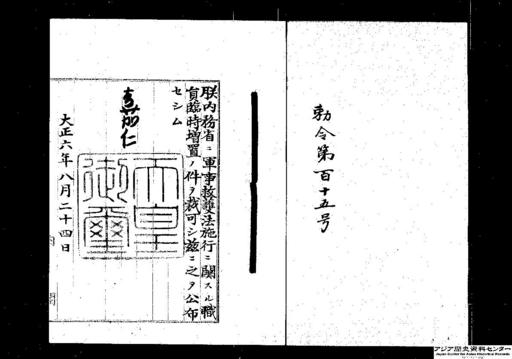 勅令第百十五号
朕内務省ニ軍事救護法施行ニ関スル職
員臨時増置ノ件ヲ裁可シ茲ニ之ヲ公布
セシム
嘉仁
天皇御璽
大正六年八月二十四日
アジア歴史資料センター
Japan Center for Asian Historical Records